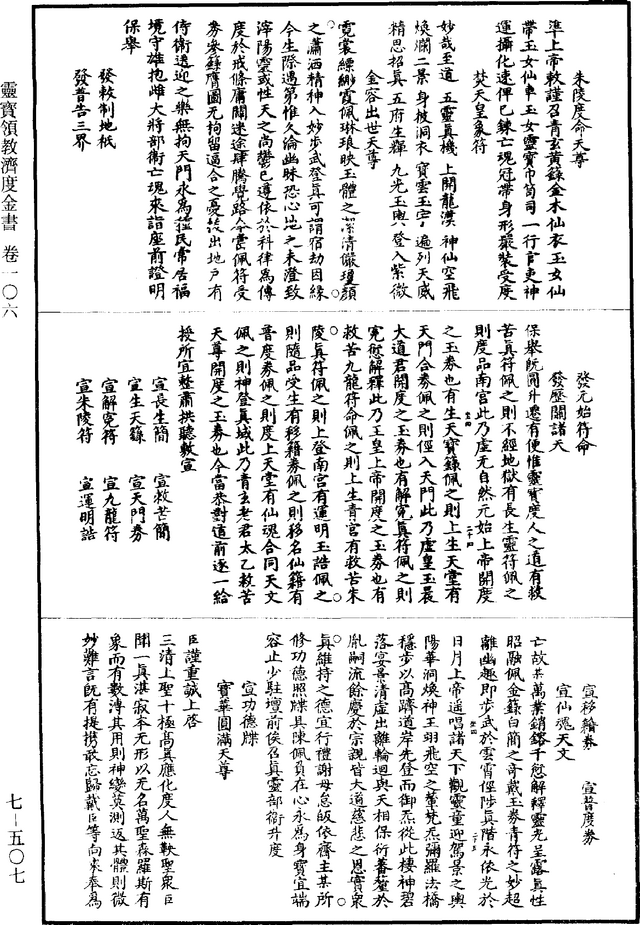 朱陵度命天尊
準上帝敕謹召青玄黃籙金木仙衣玉女仙
帶玉女仙車玉女靈寶巾笥司一行官吏神
運攝化速俾已鍊亡魂冠帶身形嚴裝受度
焚天皇象符
妙哉至道　五靈真機　上開龍漢　神仙空飛
煥爛二景　身披洞衣　寶雲玉宇　遍列天威
精思招真　五府生輝　九光玉輿　登入紫微
金容出世天尊
霓裳縹緲霞佩琳琅映玉體之潔清儼瓊顏
之瀟洒精神入妙步武登真可謂宿劫因緣
今生際遇第惟久淪幽昧恐心地之未澄致
滓陽靈或性天之尚鬱已遵依於科律為傳
度於戒條庸關迷途肆騰學路今當佩符受
券參錄膺圖无拘留逼合之憂後出地戶有
侍衛送迎之樂無拘天門永為種民常居福
境守雄抱雌大將部衛亡魂來詣座前證明
保舉
發敕制地祇
發普告三界
發元始符命
發歷關諸天
保舉既圓升遷有便惟靈寶度人之道有救
苦真符佩之則不經地獄有長生靈符佩之
則度品南宮此乃虛无自然元始上帝開度
之玉券也有生天寶籙佩之則上生天堂有
天門合券佩之則徑入天門此乃虛皇玉晨
大道君開度之玉券也有解冤真符佩之則
冤愆解釋此乃玉皇上帝開度之玉券也有
救苦九龍符命佩之則上生青宮有救苦朱
陵真符佩之則上登南宮有運明玉誥佩之
則隨品受生有移籍券佩之則移名仙籍有
普度券佩之則度上天堂有仙魂合同天文
佩之則神登真域此乃青玄老君太乙救苦
天尊開度之玉券也今當恭對道前逐一給
授所宜整肅拱聽敷宣
宣長生簡　宣救苦簡
宣生天籙　宣天門券
宣解冤符　宣九龍符
宣朱陵符　宣運明誥
宣移籍券　宣普度券
宣仙魂天文
亡故某萬業銷鎔千愆解釋靈光呈露真性
昭融佩金籙白簡之奇戴玉券青符之妙超
離幽趣即步武於雲霄徑陟真階永依光於
日月上帝遥唱諸天下觀靈童迎駕景之輿
陽華洞煥神王翊飛空之輦梵炁彌羅法橋
穩步以高躋道岸先登而御炁從此棲神碧
落宴景清虛出離輪迴與天相保衍蕃釐於
胤嗣流餘慶於宗親皆大道慈悲之恩實眾
真維持之德宜行禮謝毋怠皈依齋主某所
修功德照牒具陳佩負在心永為身寶宜端
容止少駐壇前俟召真靈部衛升度
宣功德牒
寶華圓滿天尊
臣謹重誠上啓
三清上聖十極高真應化度人無鞅聖眾臣
聞一真湛寂本无形以无名萬聖森羅斯有
象而有數溥其用則神變莫測返其體則微
妙難言既有提攜敢忘歸戴臣等向來奉為
靈寶領教濟度金書　卷一〇六
七－五〇七